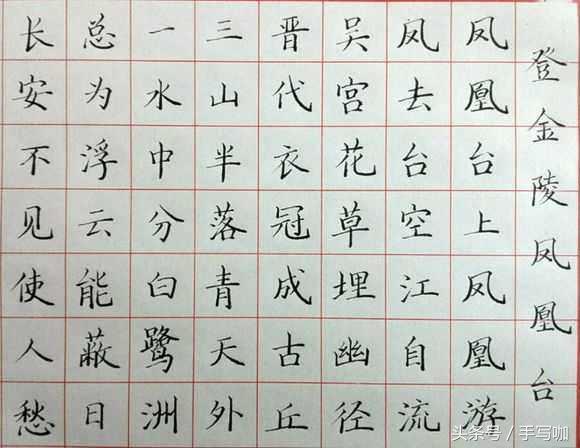 登金陵凤凰台
凤凰台上凤凰游
凤去台空江自流
吴宫花草埋幽径
晋代衣冠成古丘
三山半落青天外
一水中分白鹭洲
总为浮云能蔽日
长安不见使人愁
头条号 / 手写咖